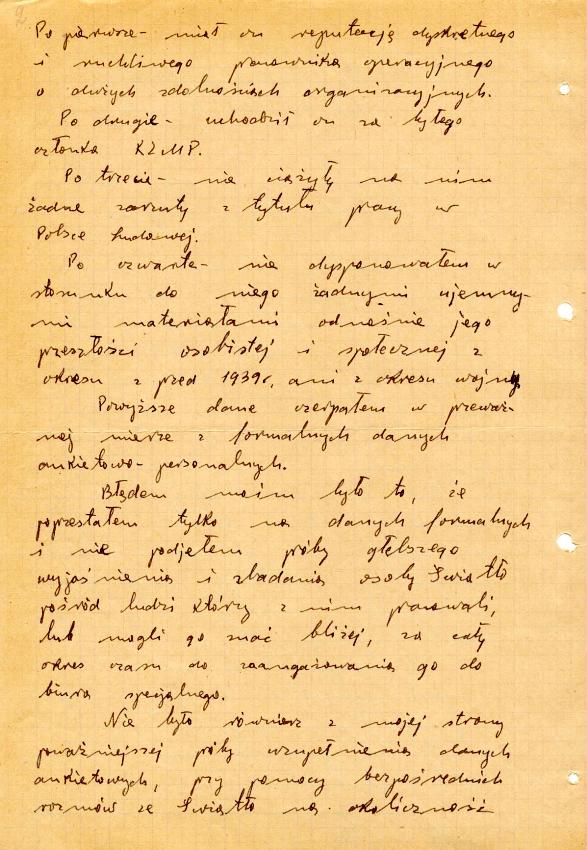 2.
Po pierwsze - miał on reputację dyskretnego
i ruchliwego pracownika operacyjnego
o dużych zdolnościach organizacyjnych.
Po drugie - uchodził on za byłego
członka KZMP.
Po trzecie - nie ciążyły na nim
żadne zarzuty z tytułu pracy w
Polsce Ludowej.
Po czwarte - nie dysponowałem w
stosunku do niego żadnymi ujemny-
mi materiałami odnośnie jego
przeszłości osobistej i społecznej z
okresu z przed 1939r, ani z okresu wojny
Powyższe dane czerpałem w przeważ-
nej mierze z formalnych danych
ankietowo - personalnych.
Błędem moim było to, że
poprzestałem tylko na danych formalnych
i nie podjełem próby głębszego
wyjaśnienia i zbadania osoby Światło
pośród ludzi którzy z nim pracowali,
lub mogli go znać bliżej, za cały
okres czasu do zaangażowania go do
biura specjalnego.
Nie było również z mojej strony
poważniejszej próby uzupełnienia danych
ankietowych, przy pomocy bezpośrednich
rozmów ze Światło na okoliczność